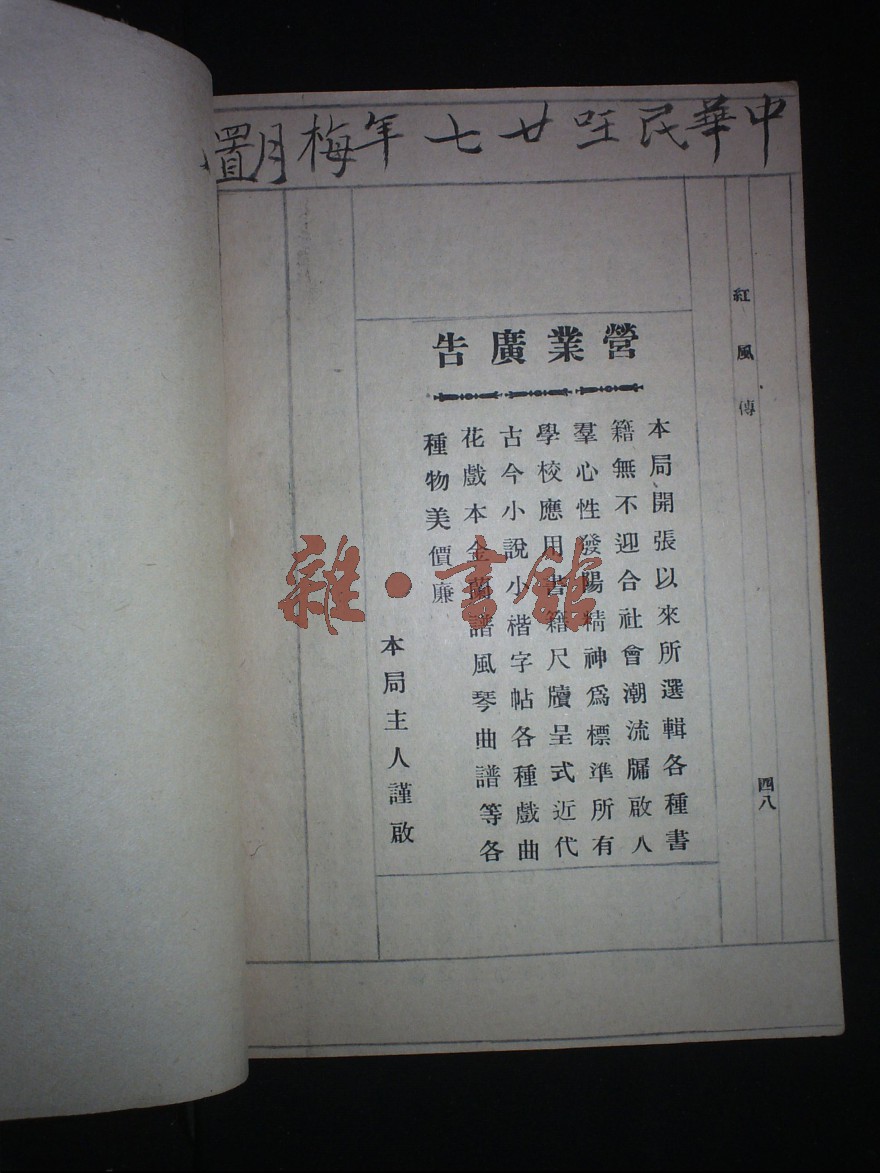 中華民国廿七年梅月置
紅風傳
四八
營業廣告
本局開張以來所選輯各種書
籍無不迎合社會潮流牖啟人
羣心性發陽精神爲標準所有
學校應用書籍尺牘呈式近代
古今小說小楷字帖各種戲曲
花戲本金蘭譜風琴曲譜等各
種物美價廉
本局主人謹啟
雜·書館